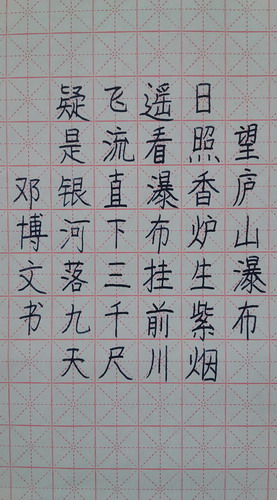 望庐山瀑布
日照香炉生紫烟
遥看瀑布挂前川
飞流直下三千尺
疑是银河落九天
邓博文书